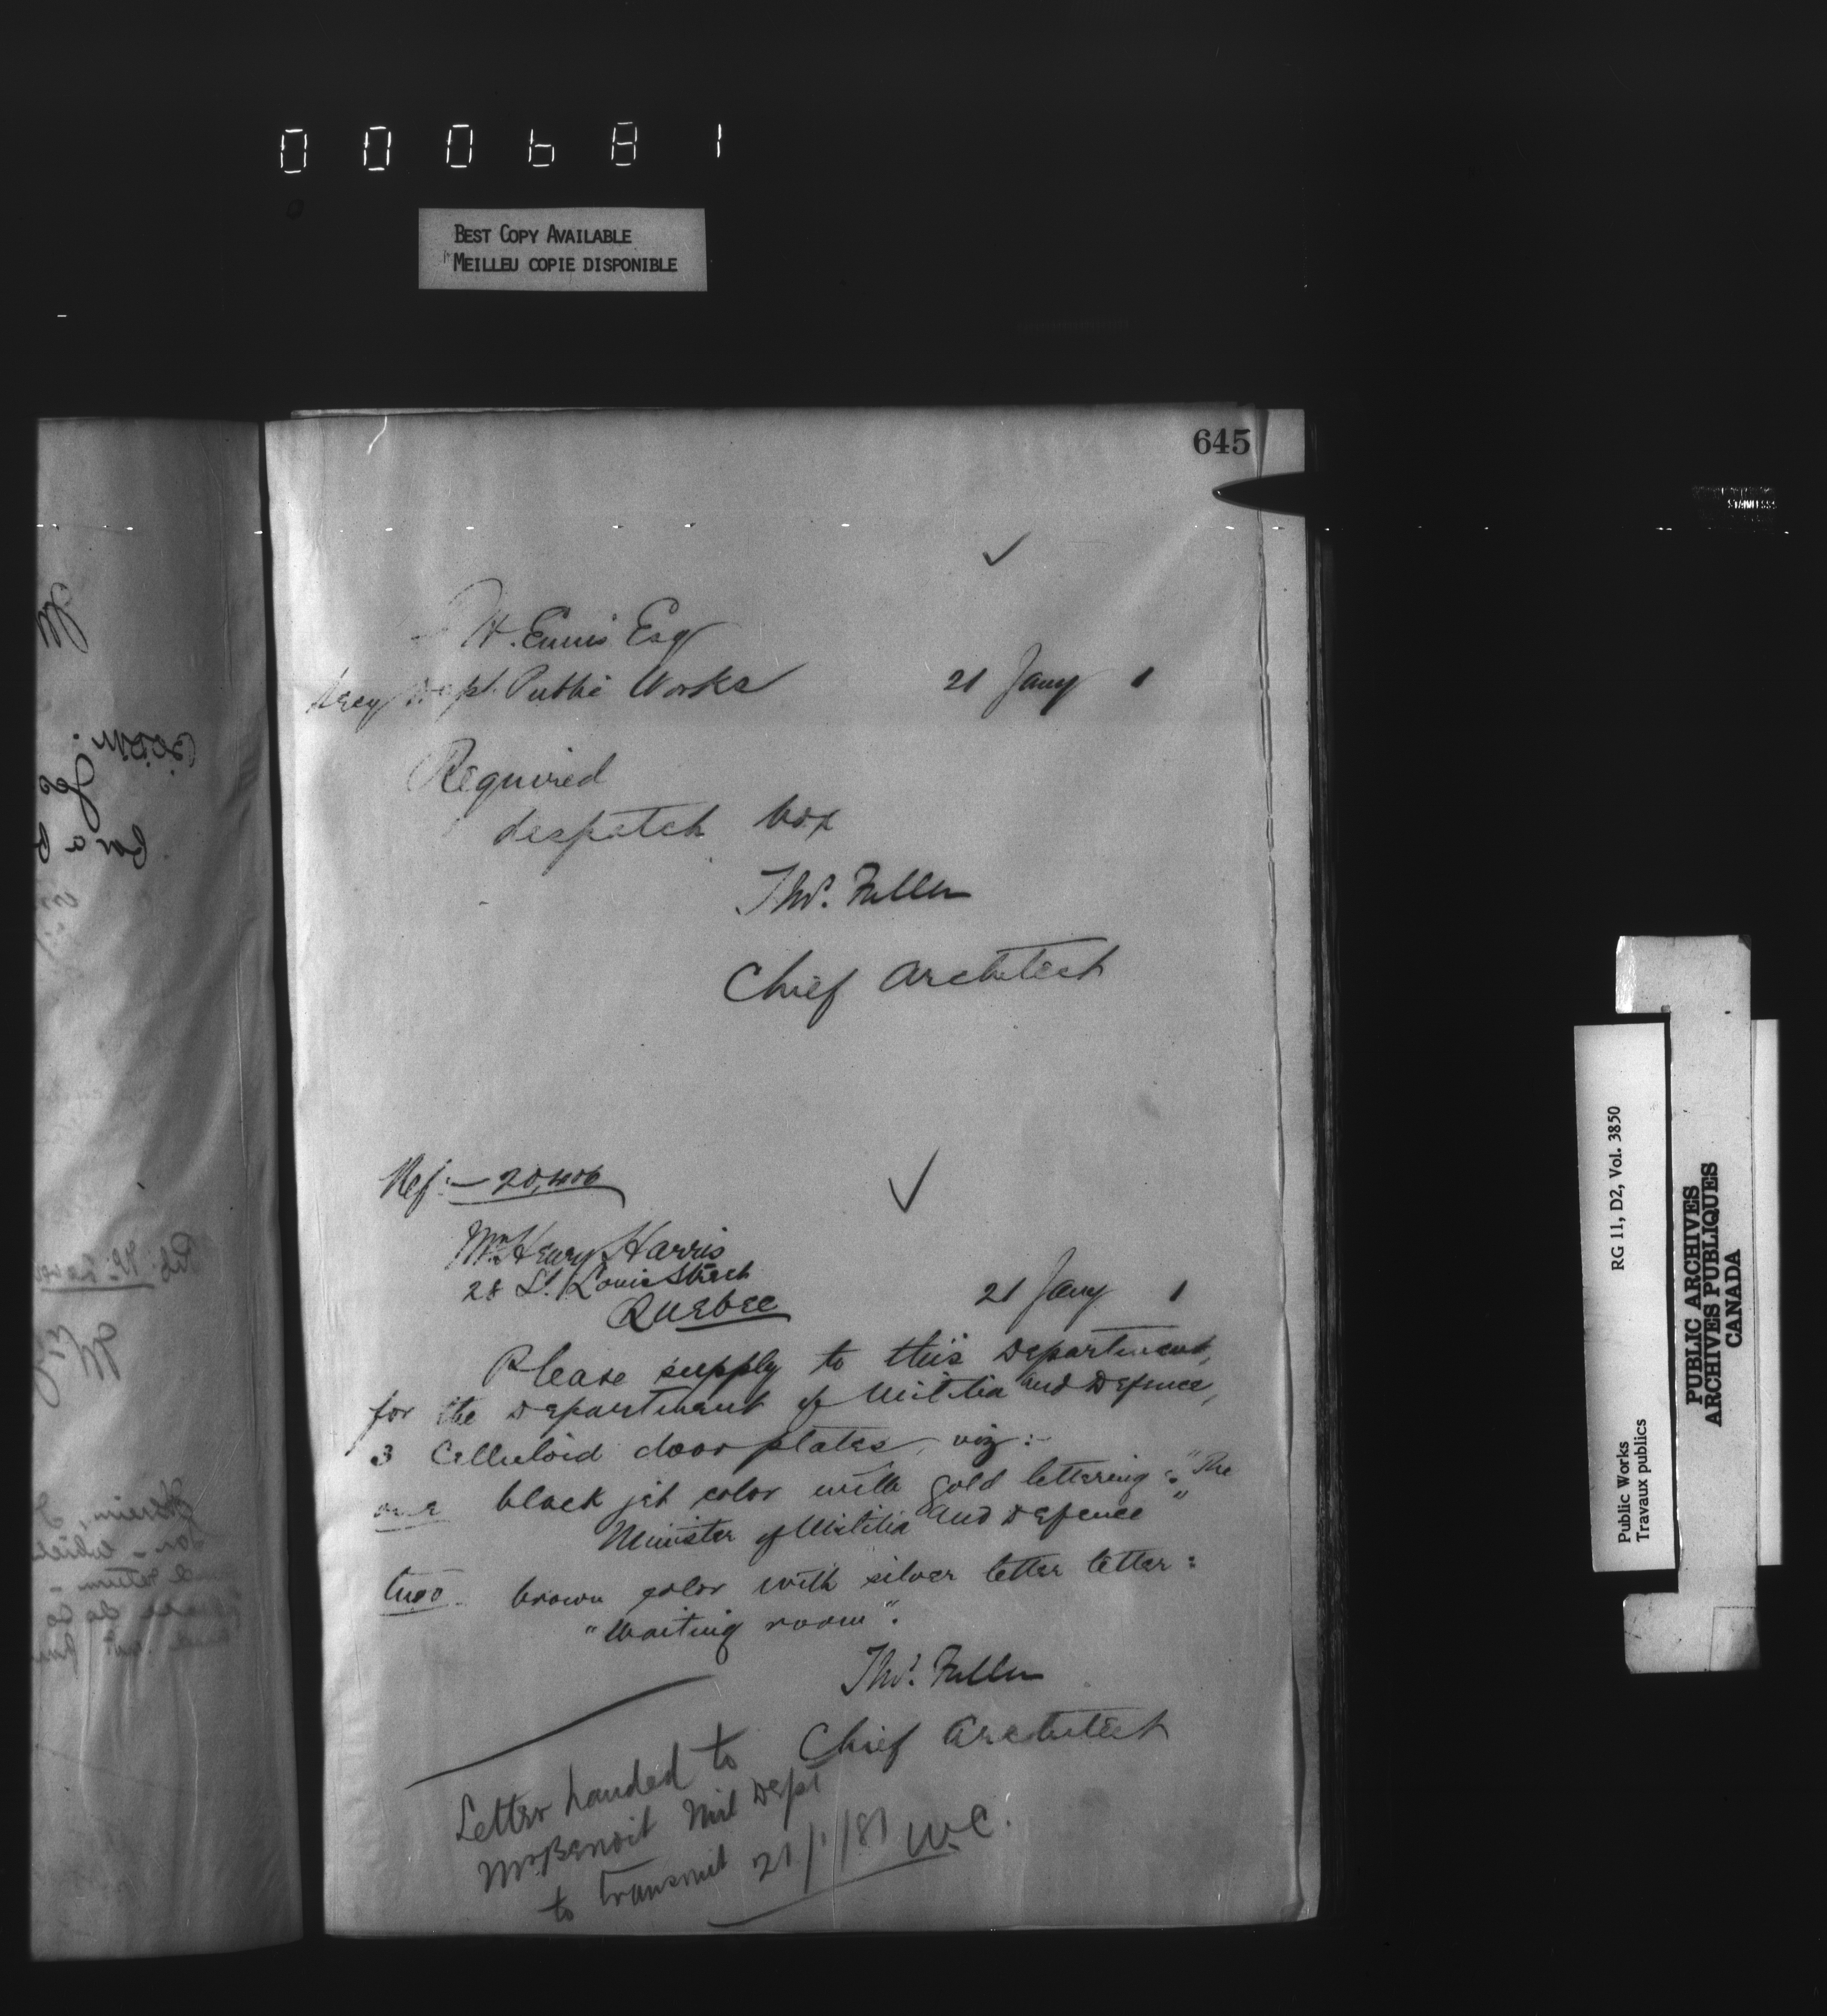 000681
BEST COPY AVAILABLE
MEILLEU COPIE DISPONIBLE
645
H. Ennis Esq
Secy Dept. Public Works 21 Jany 1
Required
despatch box
Thos. Fuller
Chief Architect
Ref:— 20,406
Mr. Henry Harris
28 St. Louis Street
Quebec 21 Jany 1
Please supply to this Department,
for the Department of Militia and Defence,
3 Celluloid door plates, viz:-
one black jet color with gold lettering: "The
Minister of Militia and Defence"
two brown color with silver letter letter:
"Waiting room".
Thos. Fuller
Chief Architect
Letter handed to
Mr. Benoit Mil Dept
to transmit 21/1/81 W.C.
STAINLESS
RG 11, D2, Vol. 3850
Public Works
Travaux publics
PUBLIC ARCHIVES
ARCHIVES PUBLIQUES
CANADA